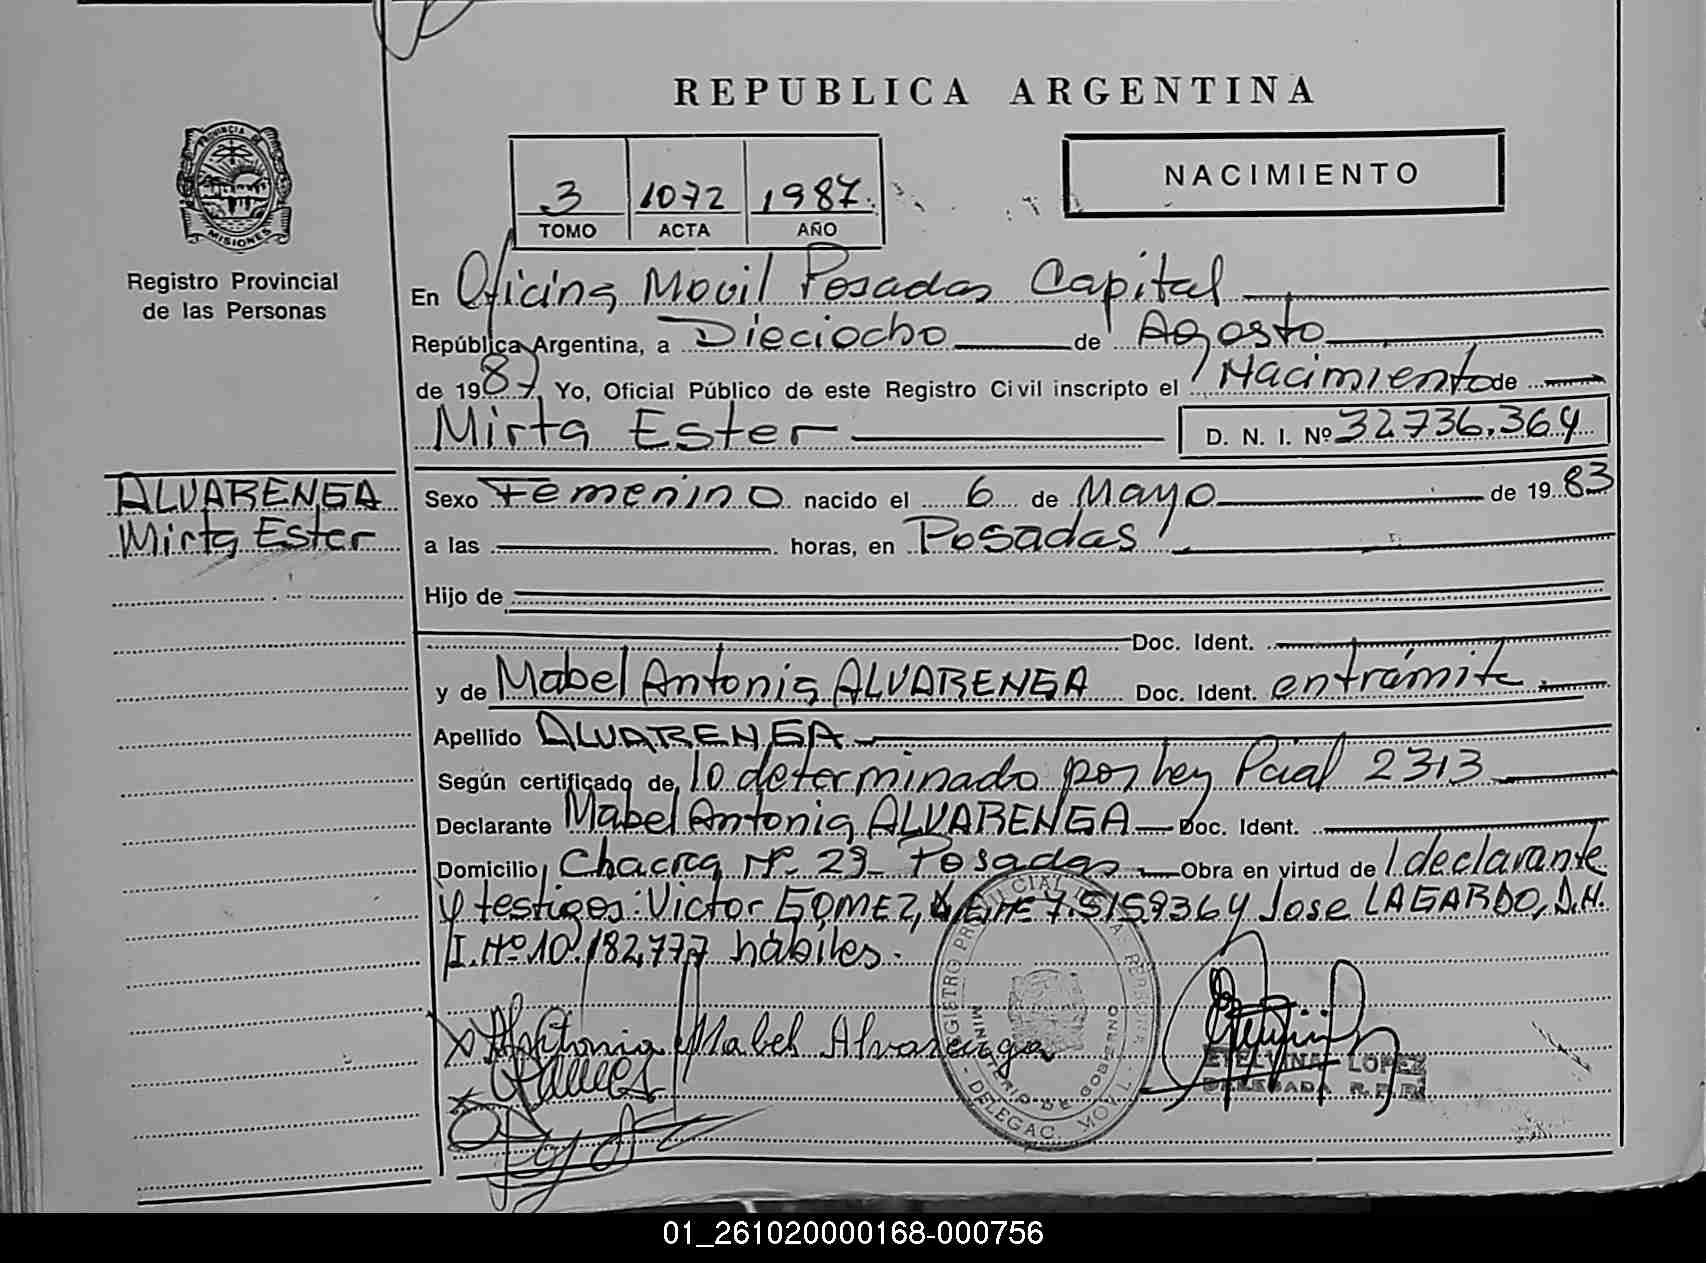 REPUBLICA ARGENTINA
PROVINCIA DE MISIONES
Registro Provincial
de las Personas
3 1072 1987.
TOMO ACTA AÑO
NACIMIENTO
En Oficina Movil Posadas Capital
República Argentina, a Dieciocho de Agosto
de 1987, Yo, Oficial Público de este Registro Civil inscripto el Nacimiento de
Mirta Ester D. N. I. Nº 32.736.364
ALVARENGA
Mirta Ester
Sexo Femenino nacido el 6 de Mayo de 1983
a las horas, en Posadas
Hijo de
Doc. Ident.
y de Mabel Antonia ALVARENGA Doc. Ident. en trámite
Apellido ALVARENGA
Según certificado de lo determinado por Ley Pcial 2313
Declarante Mabel Antonia ALVARENGA Doc. Ident.
Domicilio Chacra Nº 29 Posadas Obra en virtud de l declarante
y testigos: Victor GOMEZ, 7.515.936 y Jose LAGARDO, D.N.
I. Nº 10.182.777 hábiles.
Antonia Mabel Alvarenga
REGISTRO PROVINCIAL DE LAS PERSONAS
MINISTERIO DE GOBIERNO
- DELEGAC. MOVIL -
ETELVINA LOPEZ
DELEGADA R.P.P.
01_261020000168-000756